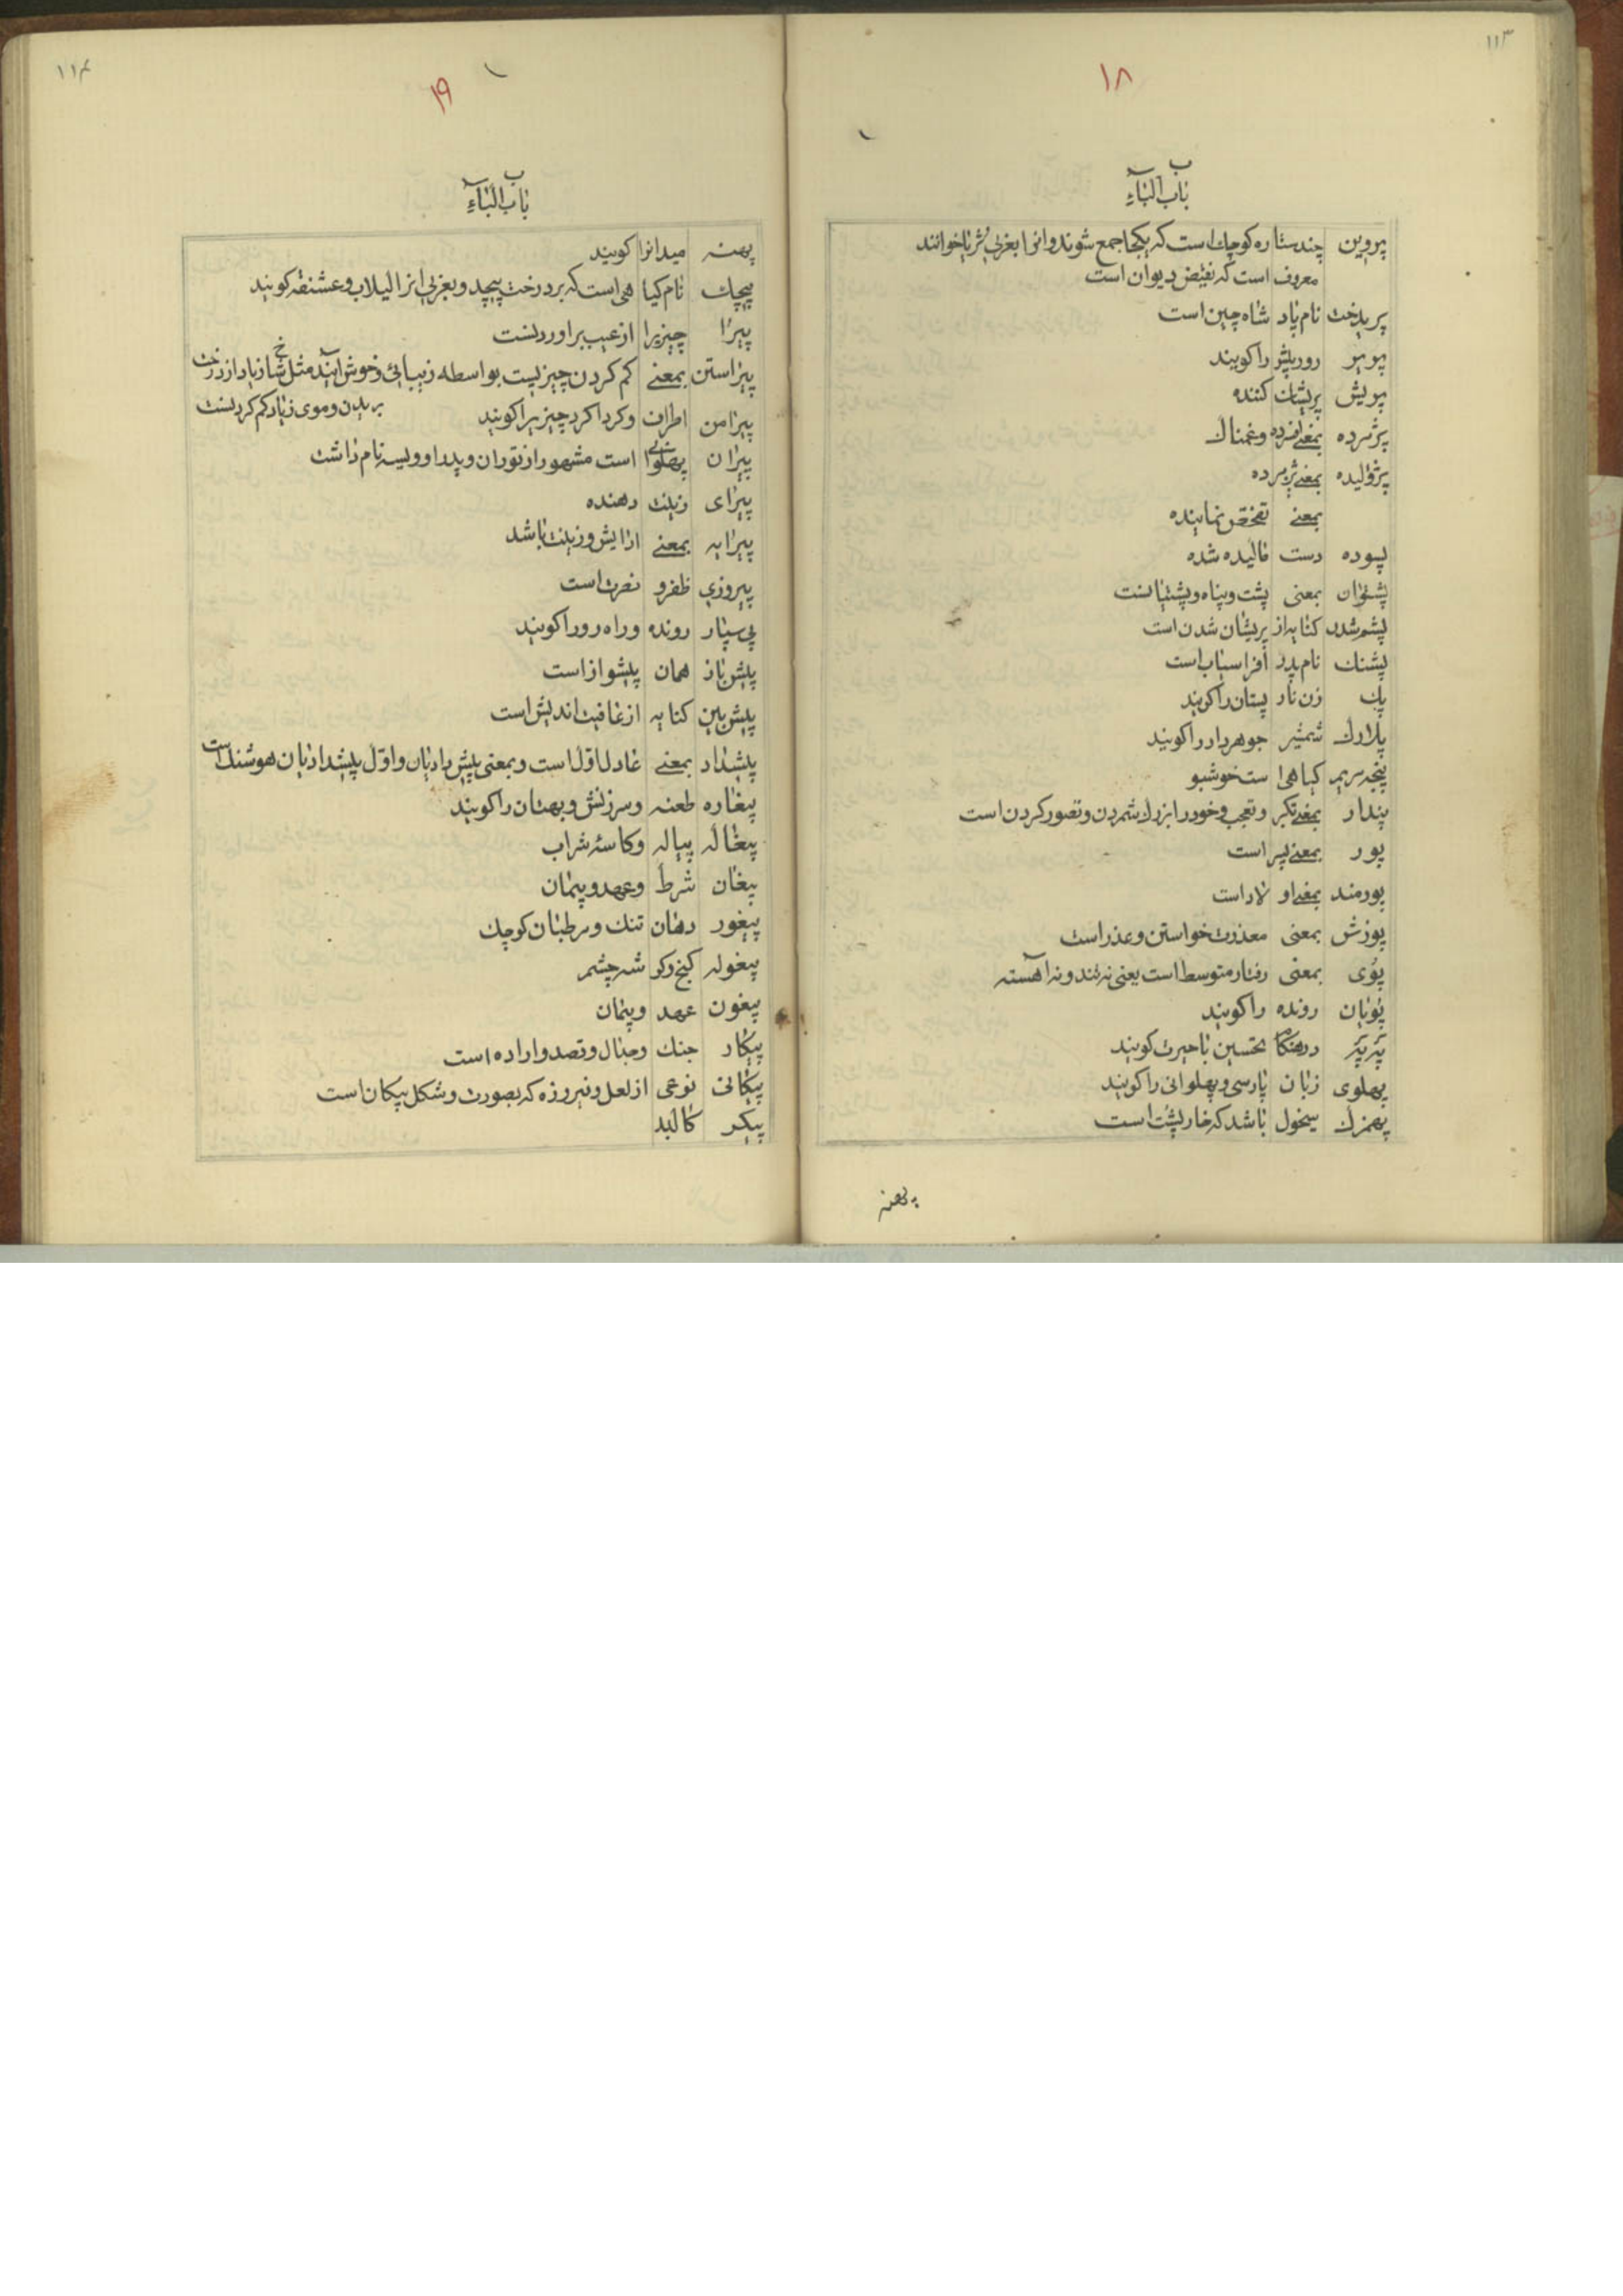 ١١٣
١٨
باب الباء
پروین چند ستاره کوچک است که یکجا جمع شوند وانرا بعربی ثریا خوانند
معروف است که نقیض دیوان است
پریدخت نام پاد شاه چین است
روریش را کویند
پریش پریشان کننده
پژمرده بمعنی افسرده وغمناک
پژولیده بمعنی پژمرده
بمعنی تفحّص نماینده
پسوده دست مالیده شده
پشتوان بمعنی پشت وپناه وپشتیبانست
پشم شدن کنایه از پریشان شدن است
پشنک نام پدر افراسیاب است
پک زن نار پستان را کویند
پلارک شمشیر جوهردار را کویند
پنجه مریم کیاهی است خوشبو
پندار بمعنی تکبر وتعجب وخود را بزرک شمردن وتصور کردن است
پور بمعنی پسر است
پورمند بمعنی اولاد است
پوزش بمعنی معذرت خواستن وعذر است
پوی بمعنی رفتار متوسط است یعنی نه تند ونه اهسته
پویان رونده را کویند
درهنکام تحسین با حیرت کویند
پهلوی زبان پارسی وپهلوانی را کویند
پهمزک سیخول باشد که خارپشت است
پهنه
١١٤
١٩
باب الباء
پهنه میدانرا کویند
پیچک نام کیاهی است که بر درخت پیچد وبعربی انرا لبلاب وعشقه کویند
پیرا چیزیرا از عیب براوردنست
پیراستن بمعنی کم کردن چیزیست بواسطه زیبائی وخوش ایند مثل شاخ زیاد از درخت
بریدن وموی زیاد کم کردنست
پیرامن اطراف وکرداکرد چیزیرا کویند
پیران پهلوانی است مشهور از توران وپدر او ویسه نام داشت
پیرای زینت دهنده
پیرایه بمعنی ارایش وزینت باشد
پیروزی ظفر و نصرت است
پی سپار رونده وراه رو را کویند
پیش باز همان پیشواز است
پیش بین کنایه از عاقبت اندیش است
پیشداد بمعنی عادل اوّل است وبمعنی پیش دادیان واوّل پیشدادیان هوشنک است
پیغاره طعنه وسرزنش وبهتان را کویند
پیغاله پیاله وکاسهٔ شراب
پیغان شرط وعهد وپیمان
پیغور دهان تنک ومرطبان کوچک
پیغوله کنج وکوشه چشم
پیغون عهد وپیمان
پیکار جنک وجدال وقصد واراده است
پیکانی نوعی از لعل وفیروزه که بصورت وشکل پیکان است
پیکر کالبد